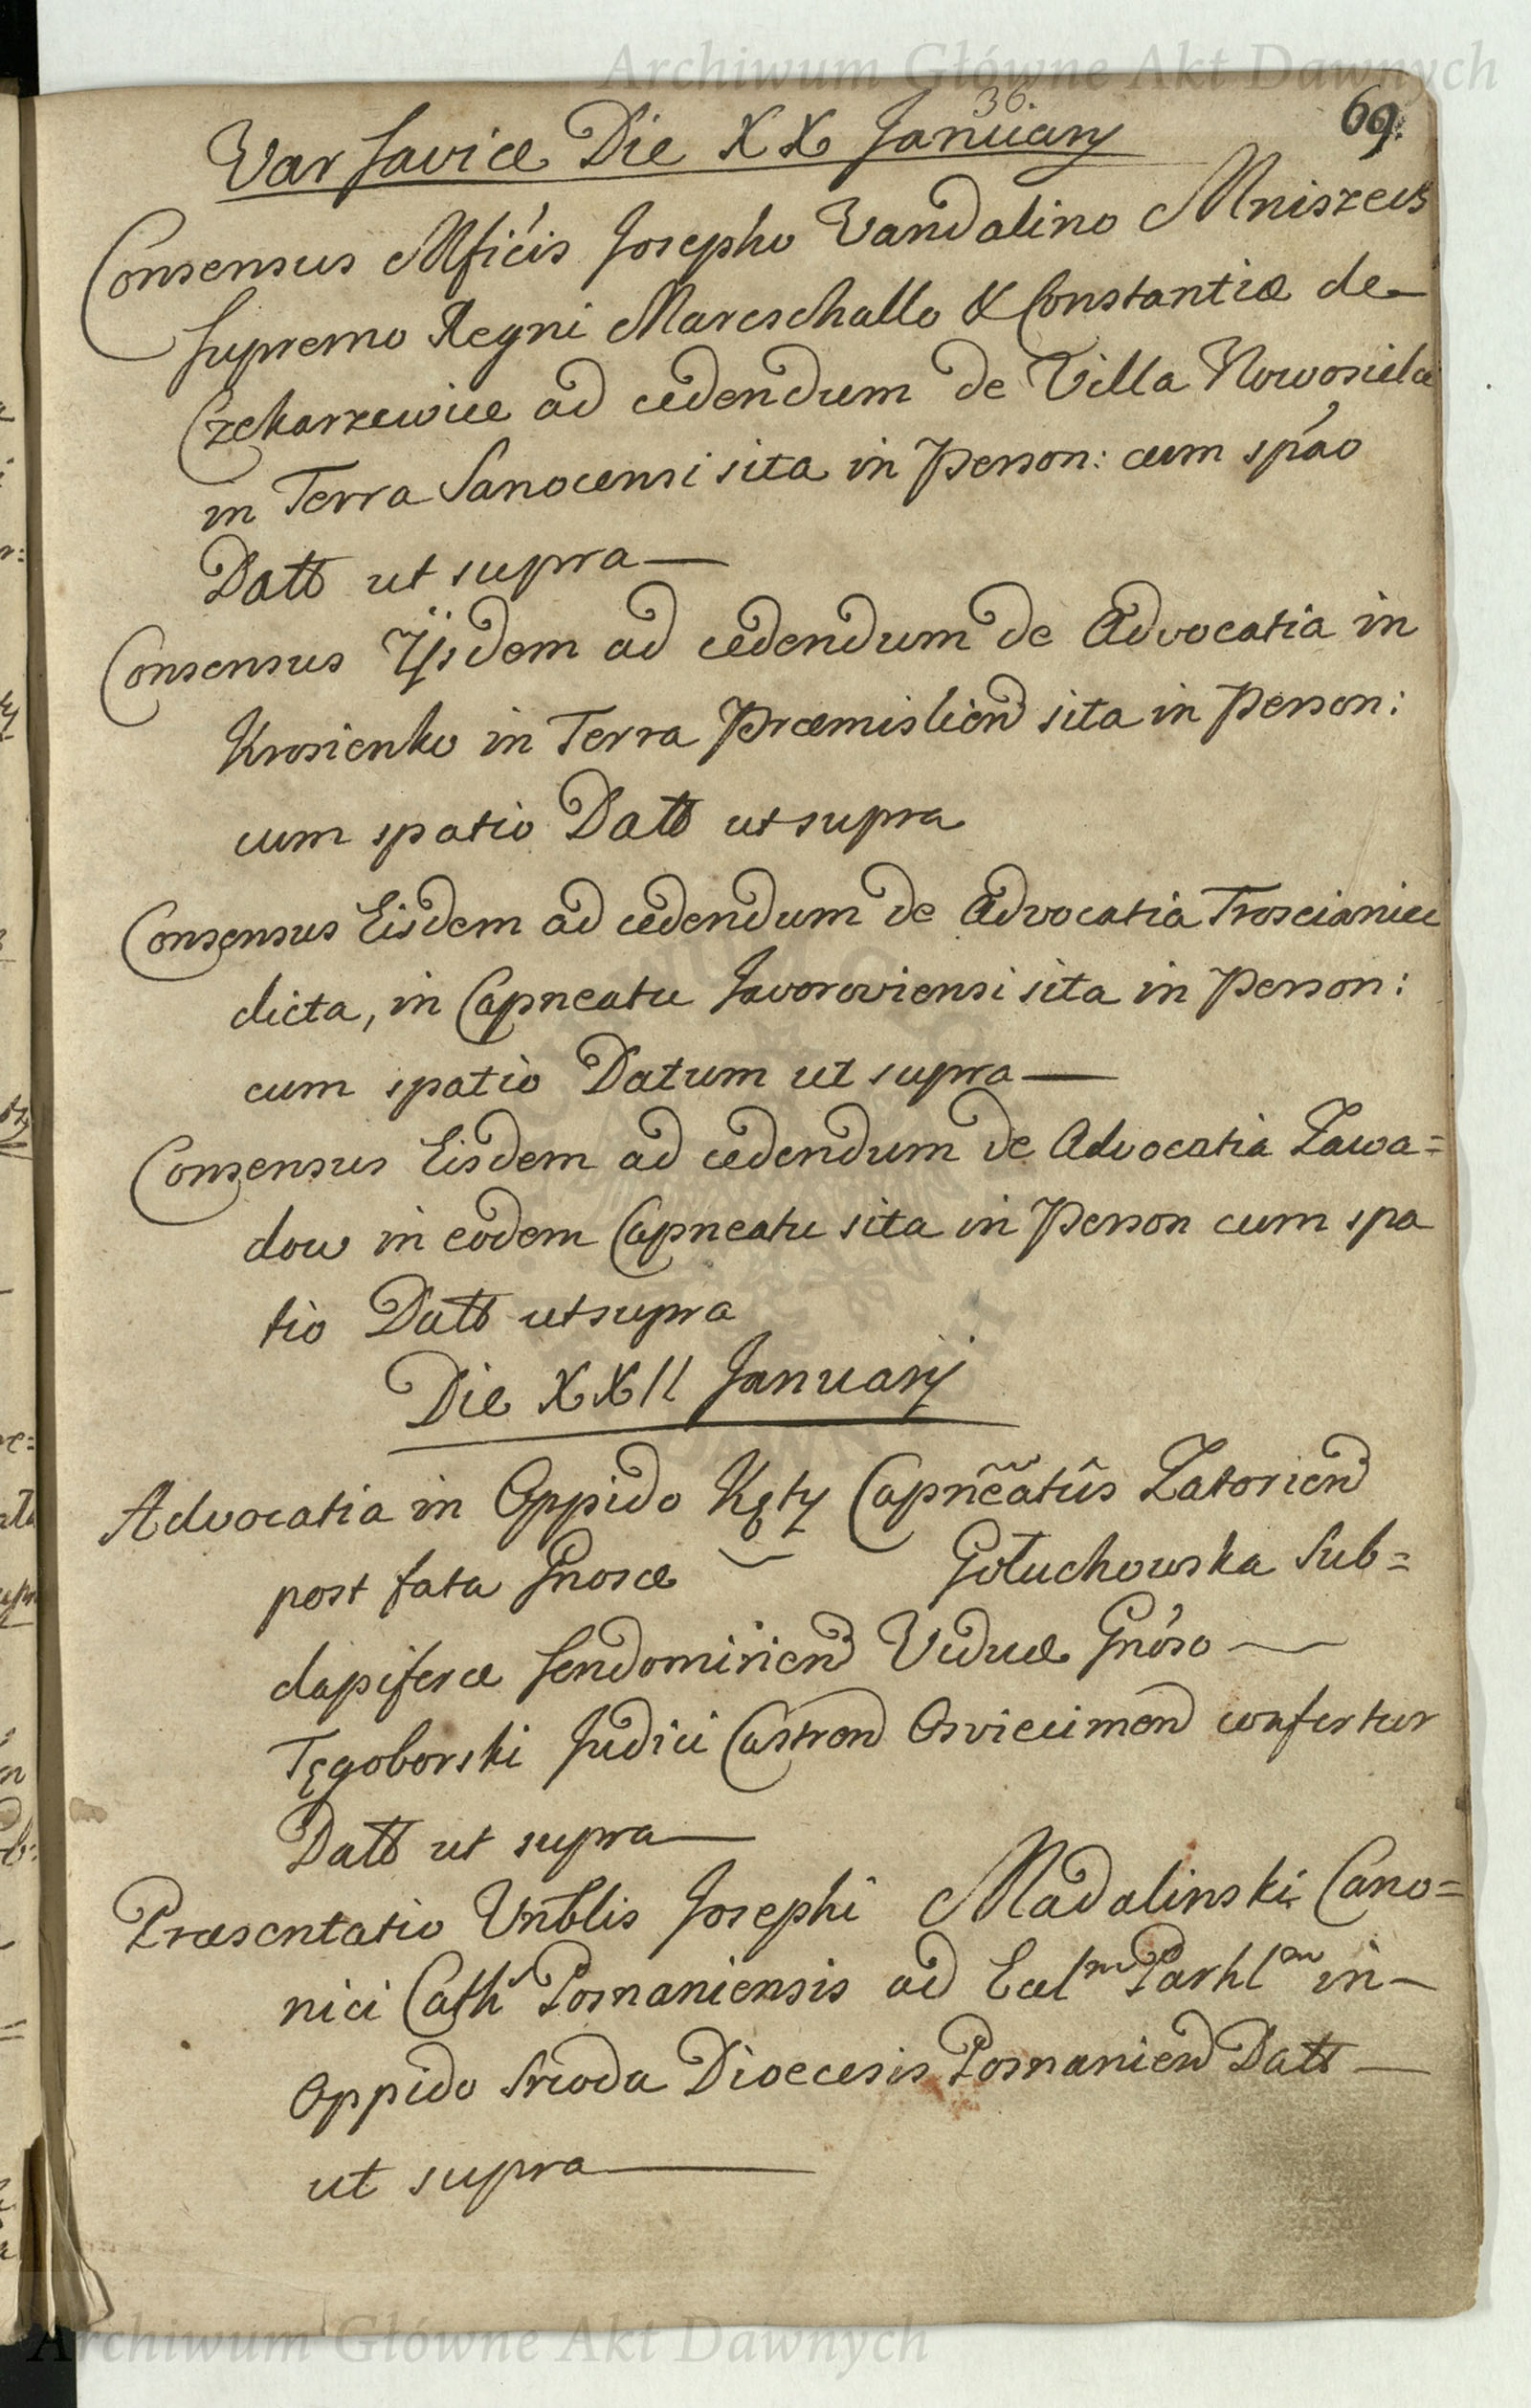 Archiwum Główne Akt Dawnych
36.
69.
Varsaviæ Die XX Januarij
Consensus Mficis Josepho Vandalino Mniszech
Supremo Regni Mareschallo & Constantiæ de
Czekarzewice ad cedendum de Villa Nowosielce
in Terra Sanocensi sita in Person: cum spão
Datt ut supra
Consensus Ijsdem ad cedendum de Advocatia in
Krosienko in Terra Præmislien sita in Person:
cum spatio Datt ut supra
Consensus Eisdem ad cedendum de Advocatia Troscianiec
dicta, in Capneatu Javoroviensi sita in Person:
cum spatio Datum ut supra
Consensus Eisdem ad cedendum de Advocatia Zawa=
dow in eodem Capneatu sita in Person cum spa
tio Datt ut supra
Die XXII Januarij
Advocatia in Oppido Kęty Capneatus Zatorien
post fata Gnosæ Gołuchowska Sub=
dapiferæ Sendomirien Viduæ Gnoso
Tęgoborski Judici Castren Osviecimen confertur
Datt ut supra
Præsentatio Vnblis Josephi Madalinski Cano=
nici Cath Posnaniensis ad Eccl^m Parhl^em in
Oppido Sroda Dioecesis Posnanien Datt
ut supra
Archiwum Główne Akt Dawnych